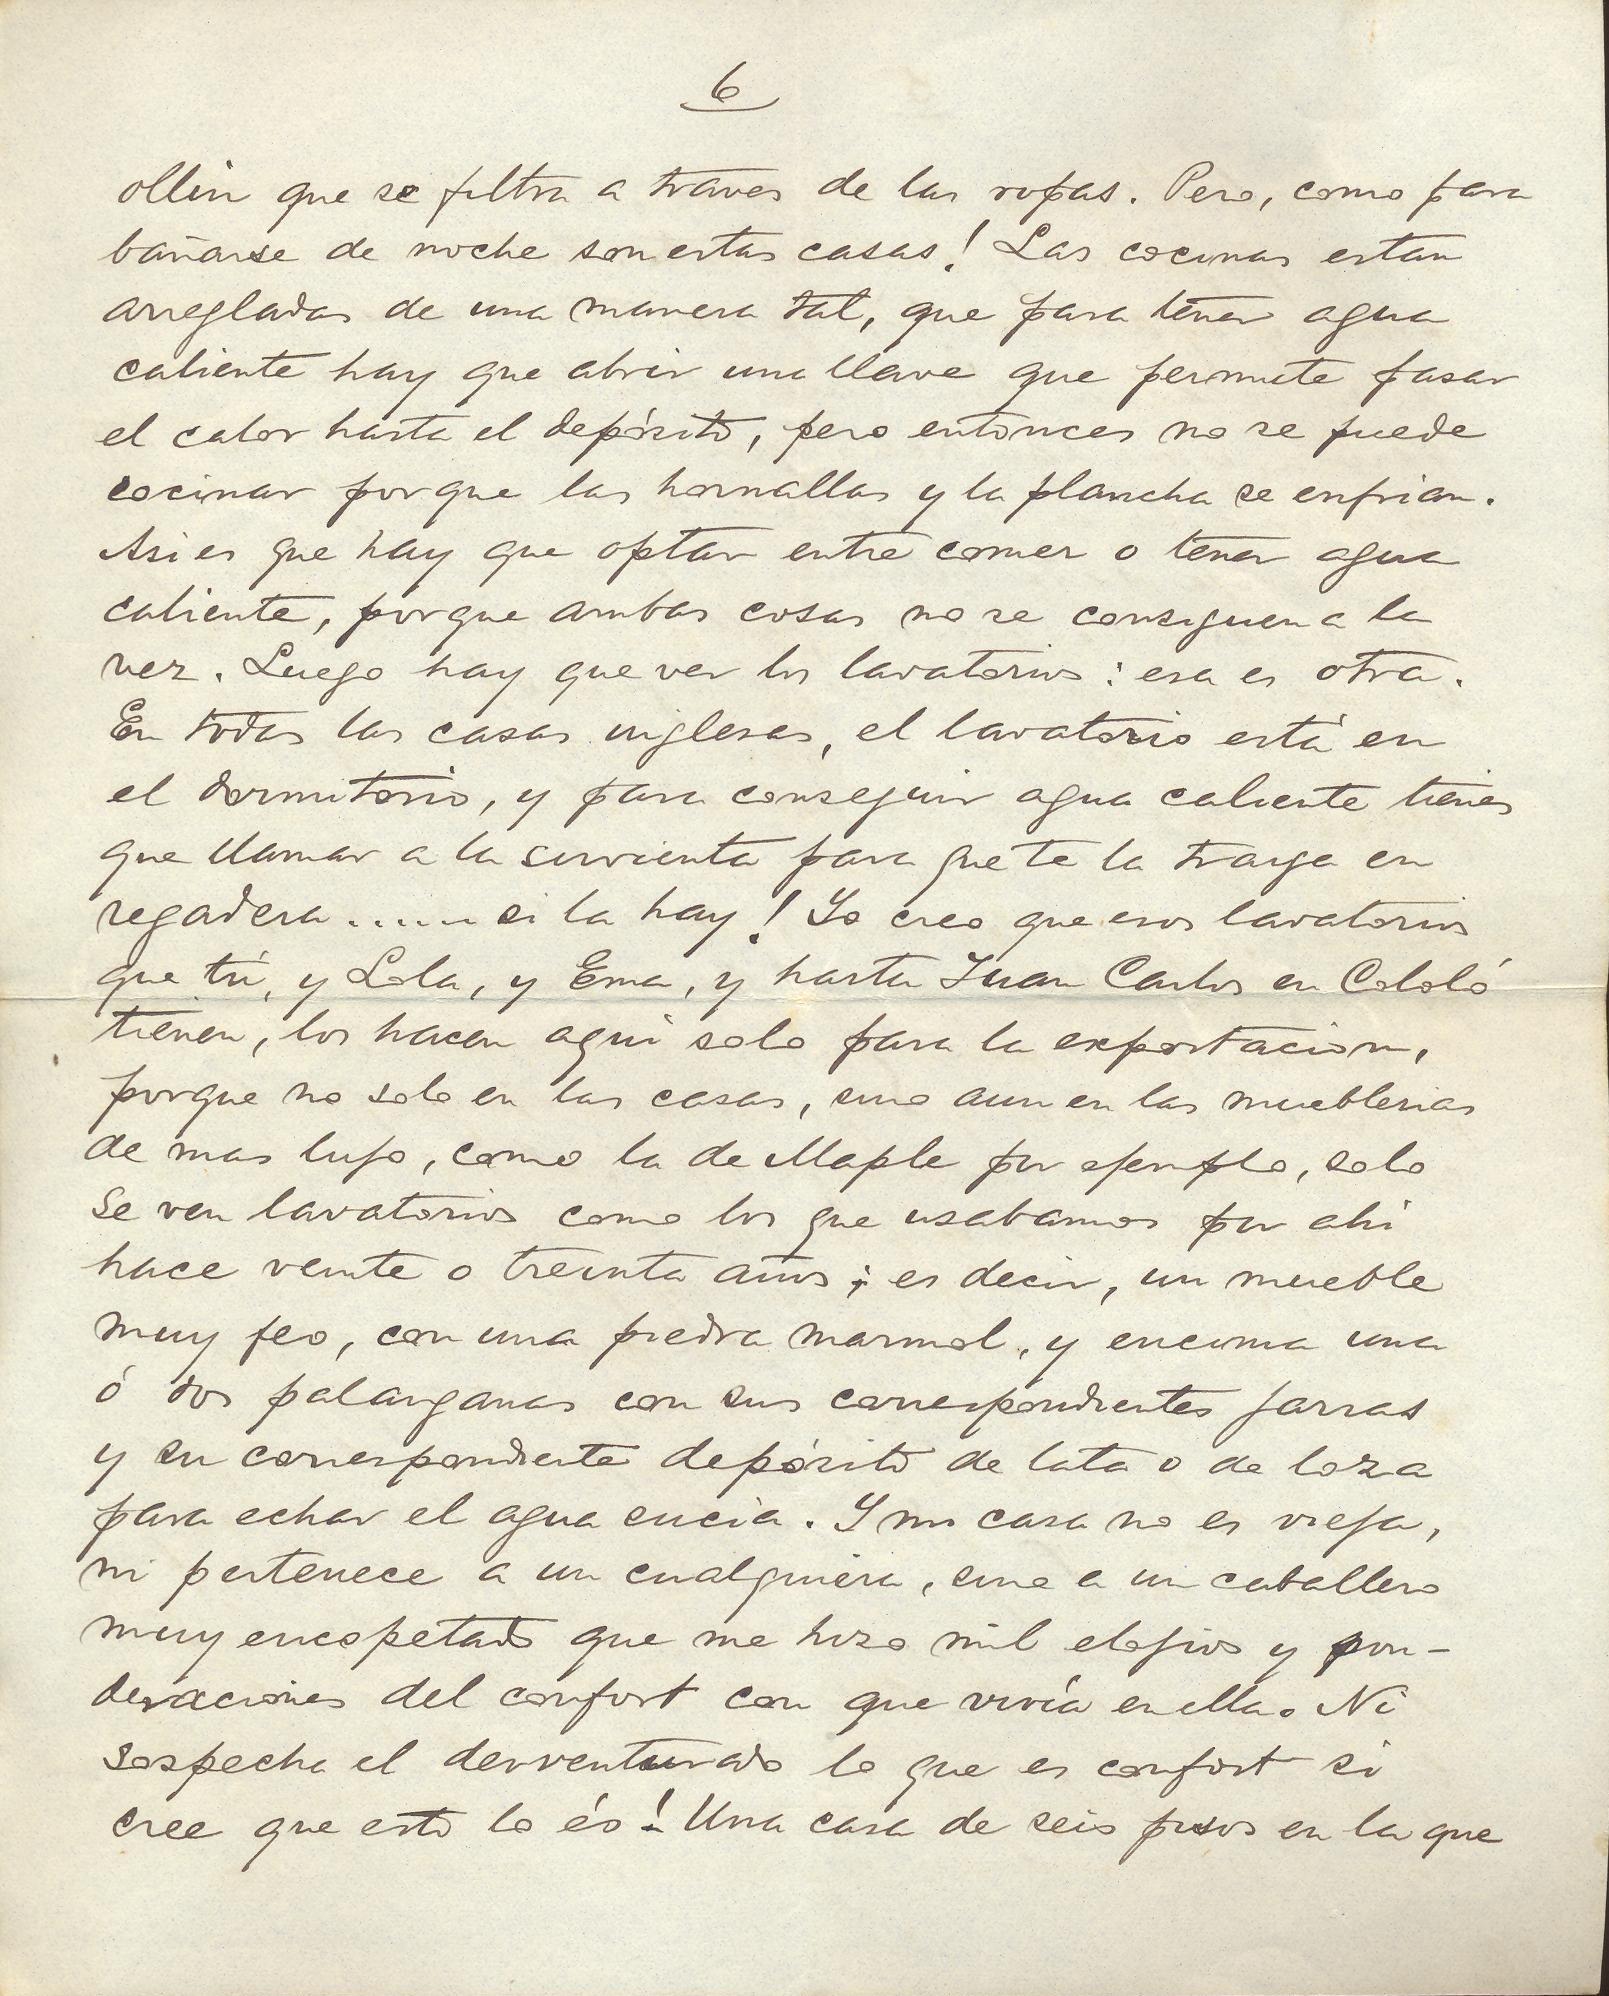 6
ollin que se filtra a traves de las ropas. Pero, como para
bañarse de noche son estas casas! Las cocinas estan
arregladas de una manera tal, que para tener agua
caliente hay que abrir una llave que permite pasar
el calor hasta el depósito, pero entonces no se puede
cocinar porque las hornallas y la plancha se enfrian.
Asi es que hay que optar entre comer o tener agua
caliente, porque ambas cosas no se consiguen a la
vez. Luego hay que ver los lavatorios: esa es otra.
En todas las casas inglesas, el lavatorio está en
el dormitorio, y para conseguir agua caliente tienes
que llamar a la sirvienta para que te la traiga en
regadera...... si la hay! Yo creo que esos lavatorios
que tú, y Lola, y Ema, y hasta Juan Carlos en Cololó
tienen, los hacen aqui solo para la exportacion,
porque no solo en las casas, sino aun en las mueblerias
de mas lujo, como la de Maple por ejemplo, solo
se ven lavatorios como los que usabamos por ahi
hace veinte o treinta años; es decir, un mueble
muy feo, con una piedra marmol, y encima una
ó dos palanganas con sus correspondientes jarras
y su correspondiente depósito de lata o de loza
para echar el agua sucia. Y mi casa no es vieja,
ni pertenece a un cualquiera, sino a un caballero
muy encopetado que me hizo mil elogios y pon-
deraciones del confort con que vivía en ella. Ni
sospecha el desventurado lo que es confort si
cree que esto lo és! Una casa de seis pisos en la que